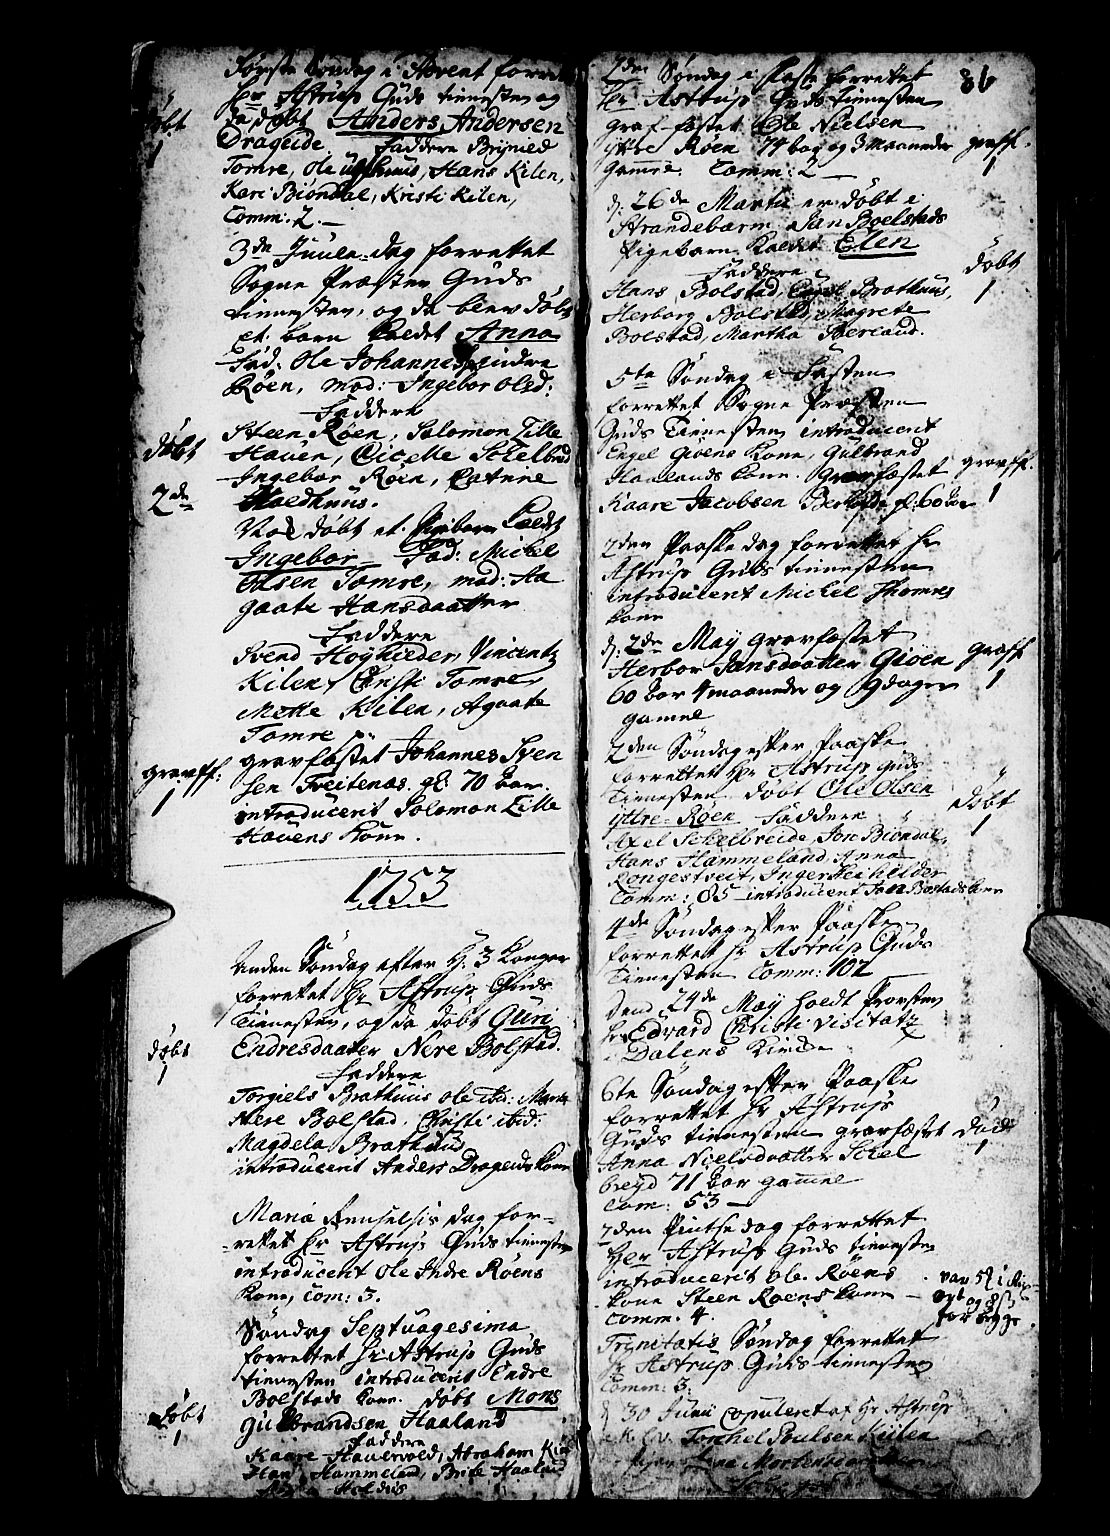 Første Søndag i Advent forrettet
hr Astrup Guds tienesten og
da døbt Anders Andersen
døbt
1
Drageide. Faddere Brynild
Tomre, Ole Hans Kilen,
Kari Biondal, Kristi Kilen,
Comm: 2.
3de Juule-dag forrettet
Sogne Præsten Guds
tienesten, og da blev døbt
et barn kaldet Anna
Fad: Ole Johannes indre
Røen, mod: Ingebor Olsd:
Faddere
Steen Røen, Salomon Lille
døbt
Hauen, Cicelle Schelbred
Ingebor Røen, Catrine
2de
Noch døbt et barn kaldt
Ingebor Fad: Michel
Olsen Tomre, mod: Aa
gaate Hansdaatter
Faddere
Svend Høyhilder, Vincentz
Kilen, Christi Tomre,
Mette Kilen, Agaate
Tomre
gravfæstet Johannes Sven
gravff:
1
sen Treitenæs. gl. 70 aar
introducerit Salomon Lille
Havens kone.
1753
Anden Søndag efter H: 3 Konger
forrettet hr Astrup Guds
Tienesten, og da døbt Guri
Endresdaater Nere Bolstad.
døbt
1
Faddere
Torgiels Brathuus Ole ibid: Marte
Nere Bolstad, Christi ibid:
Magdela Brathuus
introducerit Anders Drageids kone
Mariæ Renselsis dag for-
rettet hr Astrup Guds tienesten
introducerit Ole Indre Røens
kone, Com: 3.
Søndag Septuagesima
forrettet hr Astrup Guds
tienesten introducerit Endre
Bolstads kone. døbt Mons
døbt
1
Gulbrandsen Haaland
Faddere
Kaare Hauervold, Abraham
Hans Hammeland, Brite Haaland
36
2den Søndag i faste forrettet
hr Astrup Guds Tienesten
graf-fæstet Ole Nielsen
yttre Røen 74 aar og 3 Maaneder
graff.
1
gamle. Comm: 2
d: 26de Martii er døbt i
Strandebarm Jan Bolstads
Pigebarn kaldet Elen
døbt
1
Faddere
Hans Bolstad, Brathuus,
Herborg Bolstad, Magrete
Bolstad, Martha
5te Søndag i Fasten
forrettet Sogne Præsten
Guds Tienesten introducerit
Engel Gioens kone, Gulbrand
Haalands kone. Gravfæstet
gravff.
1
Kaare Jacobsen gl: 60 aar
2den Paaske dag forrettet hr
Astrup Guds tienesten
introducerit Michel Thomres
kone
d: 2de May gravfæstet
Herbor Jansdaatter Gioen
graff
1
60 aar 4 maaneder og 9 dage
gamle
2den Søndag efter Paaske
forrettet hr Astrup Guds
Tienesten døbt Ole Olsen
døbt
1
yttre Røen Faddere
Axel Schelbreide, Jon Biondal,
Hans Hammeland, Anna
Rongestveit, Inger Heihilder
Comm: 85 introducerit Jan Bolstads kone
4de Søndag efter Paaske
forrettet hr Astrup Guds
Tienesten Comm: 102
Dend 24de May holdt Provsten
hr Edvard Christi Visitatz
i Dalens kirke
6te Søndag efter Paaske
forrettet hr Astrup
Guds tienesten gravfæstet
døde
1
Anna Nielsdaatter Schel
breyd 71 aar gamle
Com: 53
2den Pintse dag forrettet
Her Astrup Guds tienesten
introducerit Ole Røens
kone Steen Røens kone
Comm: 4.
Trinitatis Søndag forrettet
hr Astrup Guds tienesten
Comm: 3.
d 30 Junii Copuleret af hr Astrup
Torchel Poulsen Kiilen
Mortensdaatter